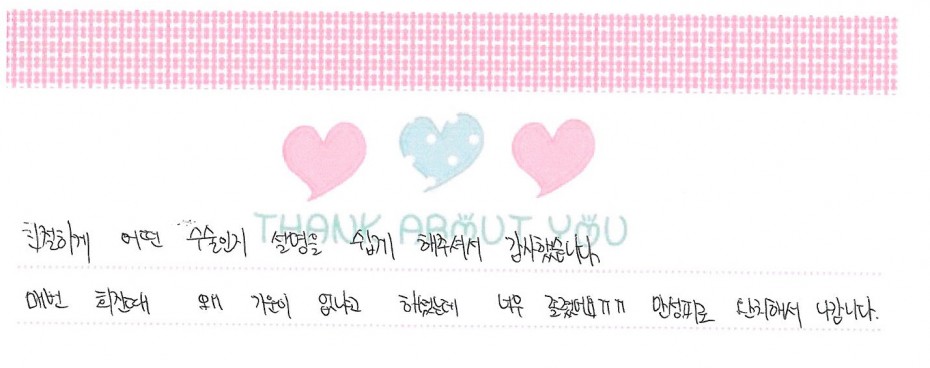 THANK ABOUT YOU
친절하게 어떤 수술인지 설명을 쉽게 해주셔서 감사했습니다.
매번 회진때 왜 기운이 없냐고 하셨는데 너무 졸렸어요ㅠㅠ 만성피로 완치해서 나갑니다.